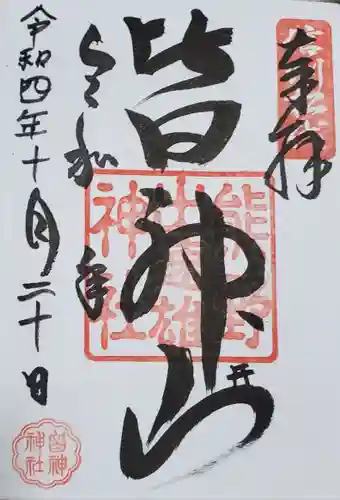 奉拝
皆神山
熊野
出速雄
神社
令和四年十月二十日
皆神
神社